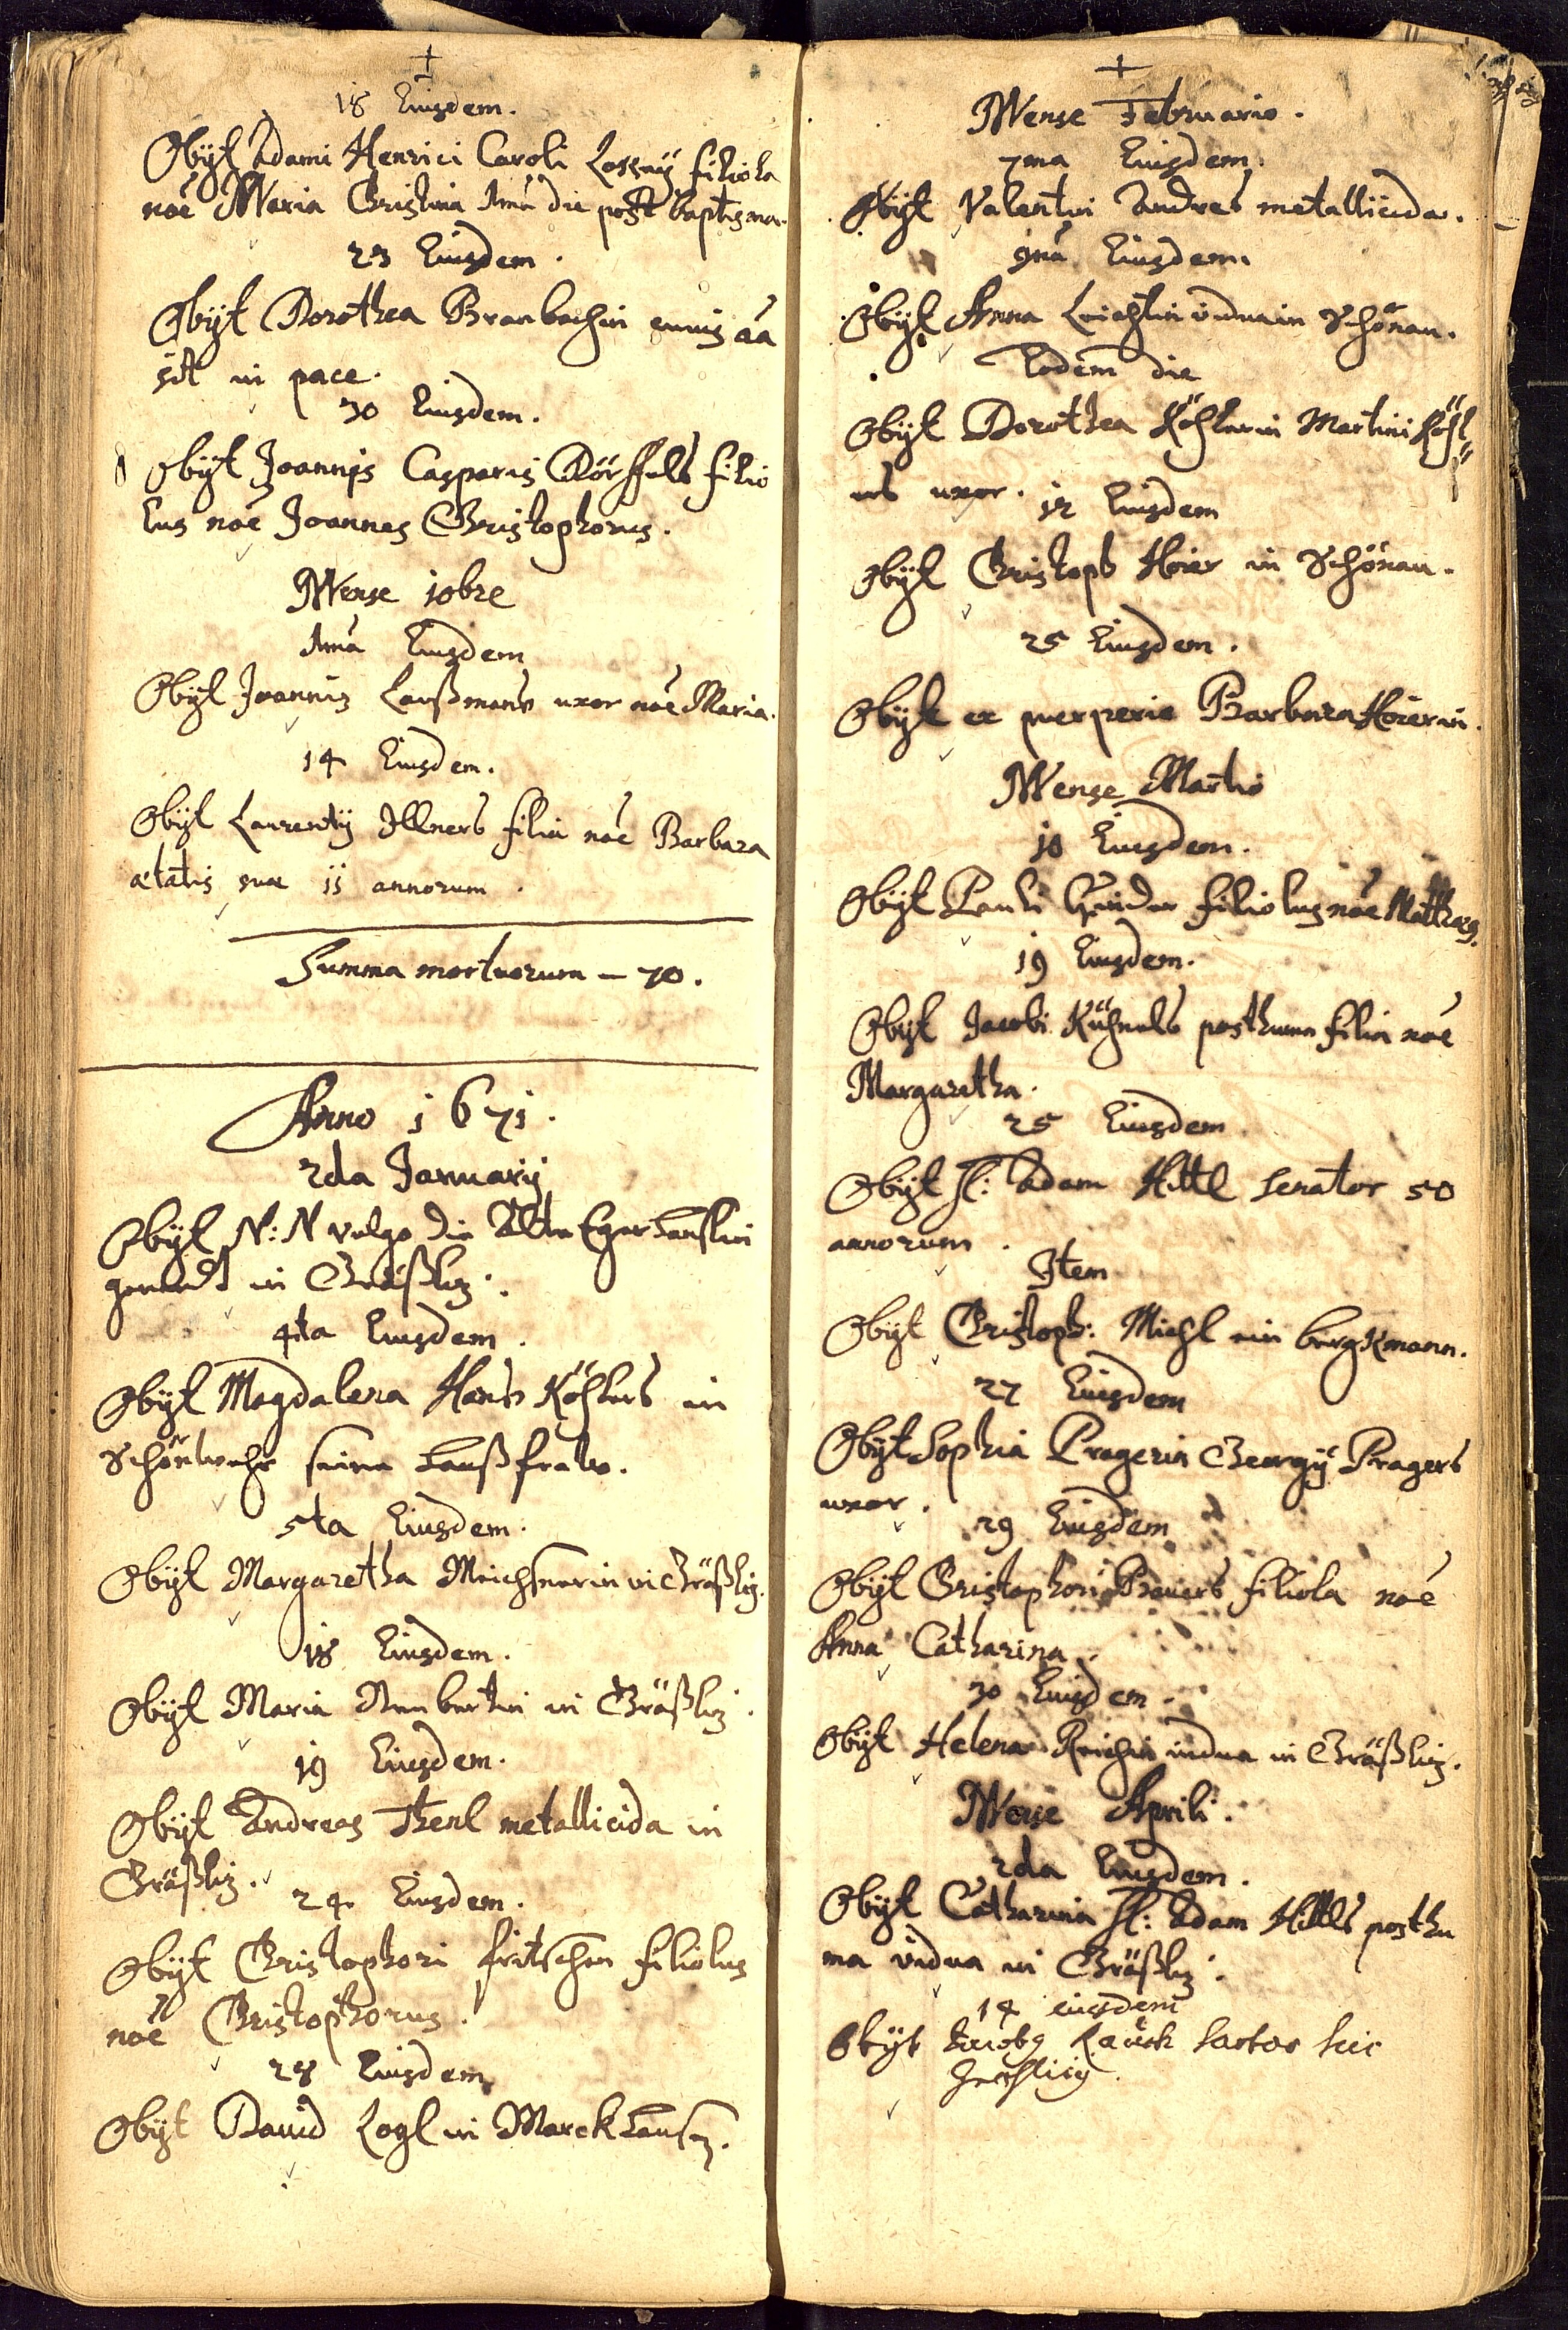 +
18 Eiusdem.
Obÿt Adami Henrici Caroli filiola
noe Maria Christina 1ma die post baptisma.
23 Eiusdem.
Obÿt Dorothea Brambachin cuius aa
sit in pace.
30 Eiusdem.
Obÿt Joannis Casparis Dörffels filio
lus noe Joannes Christophorus.
Mense 10bre
1ma Eiusdem
Obÿt Joannis Laußmans uxor noe Maria.
14 Eiusdem.
Obÿt Laurentÿ Illners filia noe Barbara
ætatis suæ 11 annorum.
Summa mortuorum — 70.
Anno 1671.
2da Januarÿ
Obÿt N: N vulgo die Alte Egerhanslin
genandt in Gräßliz.
4ta Eiusdem.
Obÿt Magdalena Hanß Köhlers in
Schönwehr seine Haußfraw.
5ta Eiusdem.
Obÿt Margaretha Meichsnerin in Gräßliz.
18 Eiusdem.
Obÿt Maria in Gräßliz.
19 Eiusdem.
Obÿt Andreas metallicida in
Gräßliz.
24 Eiusdem.
Obÿt Christophori fritschen filiolus
noe Christophorus.
28 Eiusdem
Obÿt David Logl in Marckhausen.
+
Mense Februario.
7ma Eiusdem.
Obÿt Valentin Andres metallicida.
9na Eiusdem.
Obÿt Anna vidua in Schönau.
Eodem die
Obÿt Dorothea Köhlerin Martini Köhl=
ers uxor.
12 Eiusdem
Obÿt Christoph Hoier in Schönau.
25 Eiusdem.
Obÿt ex puerperio Barbara Hoierin.
Mense Martio
10 Eiusdem.
Obÿt Pauli filiolus noe Matthæus.
19 Eiusdem.
Obÿt Jacobi Kühnels posthuma filia noe
Margaretha.
25 Eiusdem
Obÿt H: Adam Hittl Senator 50
annorum.
Item
Obÿt Christoph: Michl ein bergkmann.
27 Eiusdem
Obÿt Sophia Pragerin Georgÿ Pragers
uxor.
29 Eiusdem
Obÿt Christophori Baiers filiola noe
Anna Catharina.
30 Eiusdem.
Obÿt Helena Reichin vidua in Gräßliz.
Mense Aprili.
2da Eiusdem.
Obÿt Catharina H: Adam Hittls posthu
ma vidua in Gräßliz.
14 eiusdem
Obÿt Jacobg Lauck sartor hic